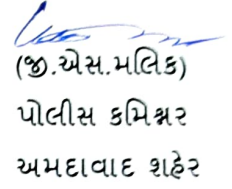 (જી.એસ.મલિક)
પોલીસ કમિશ્નર
અમદાવાદ શહેર